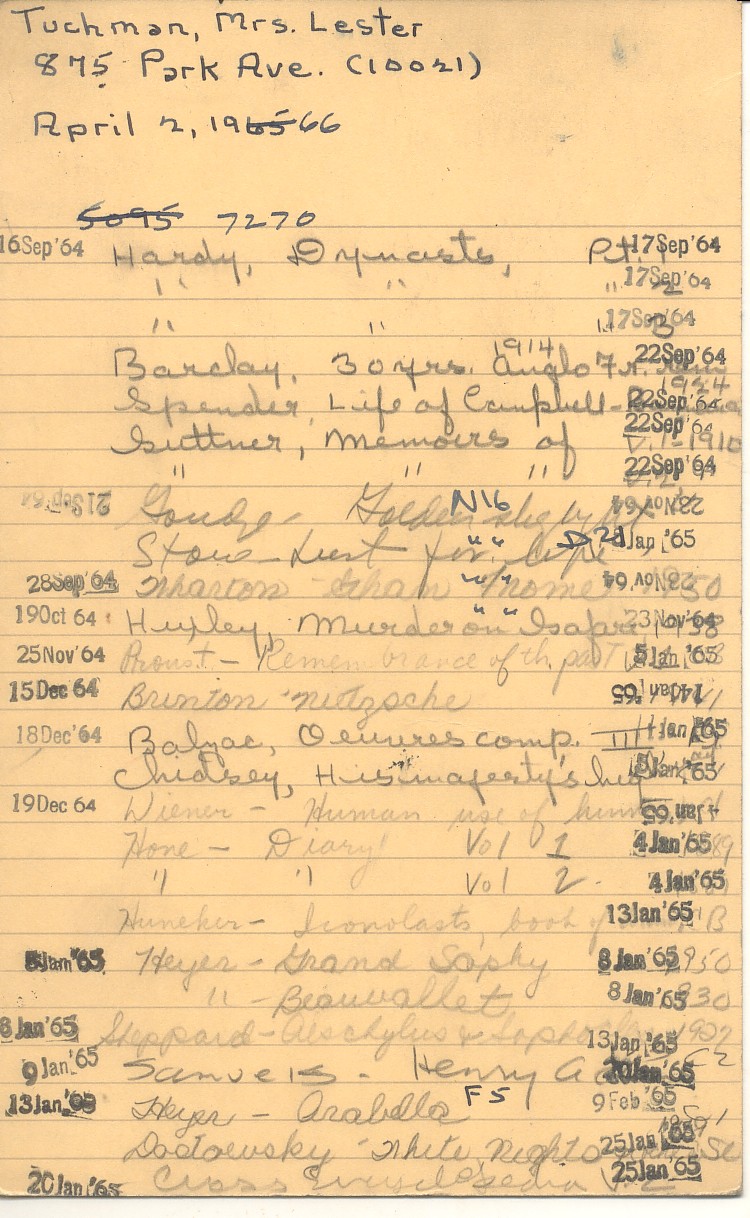 Tuchman, Mrs. Lester
875 Park Ave. (10021)
April 2, 1965 66
5095 7270
16Sep'64 Hardy, Dynasts, Pt. 1 17Sep'64
" " " 2 17Sep'64
" " " 3 17Sep'64
Barclay, 30 yrs. 1914 Anglo Fr. 22Sep'64
Spender, Life of Campbell- 1924 22Sep'64
Guttner, Memoirs of V.1-1910 22Sep'64
" " " V.2 22Sep'64
21Sep'64 Goudge - Golden N16 23Nov'64
Stone - Lust for life " " Jan'65
28Sep'64 Wharton - Ethan Frome " " 50 23Nov'64
19Oct 64 Huxley, Murder on Safari " " 1938 23Nov'64
25Nov'64 Proust - Remembrance of th. past 5Jan'65
15Dec 64 Brinton - Nietzsche 14Jan'65
18Dec'64 Balzac, Oeuvres comp. Jan'65
Chidsey, His majesty's Jan'65
19Dec 64 Wiener - Human use of hum Jan'65
Hone - Diary Vol 1 4Jan'65
" " Vol 2. 4Jan'65
Huneker - Iconolasts, book of B 13Jan'65
5Jan'65 Heyer - Grand Sophy 1950 8Jan'65
" - Beauvallet 8Jan'65
8Jan'65 Sheppard - Aeschylus & Sophocles 13Jan'65
9Jan'65 Samuels - Henry
13Jan'65 Heyer - Arabella F5 9Feb'65
Dostoevsky - White Nights 25Jan'65
20Jan'65 25Jan'65